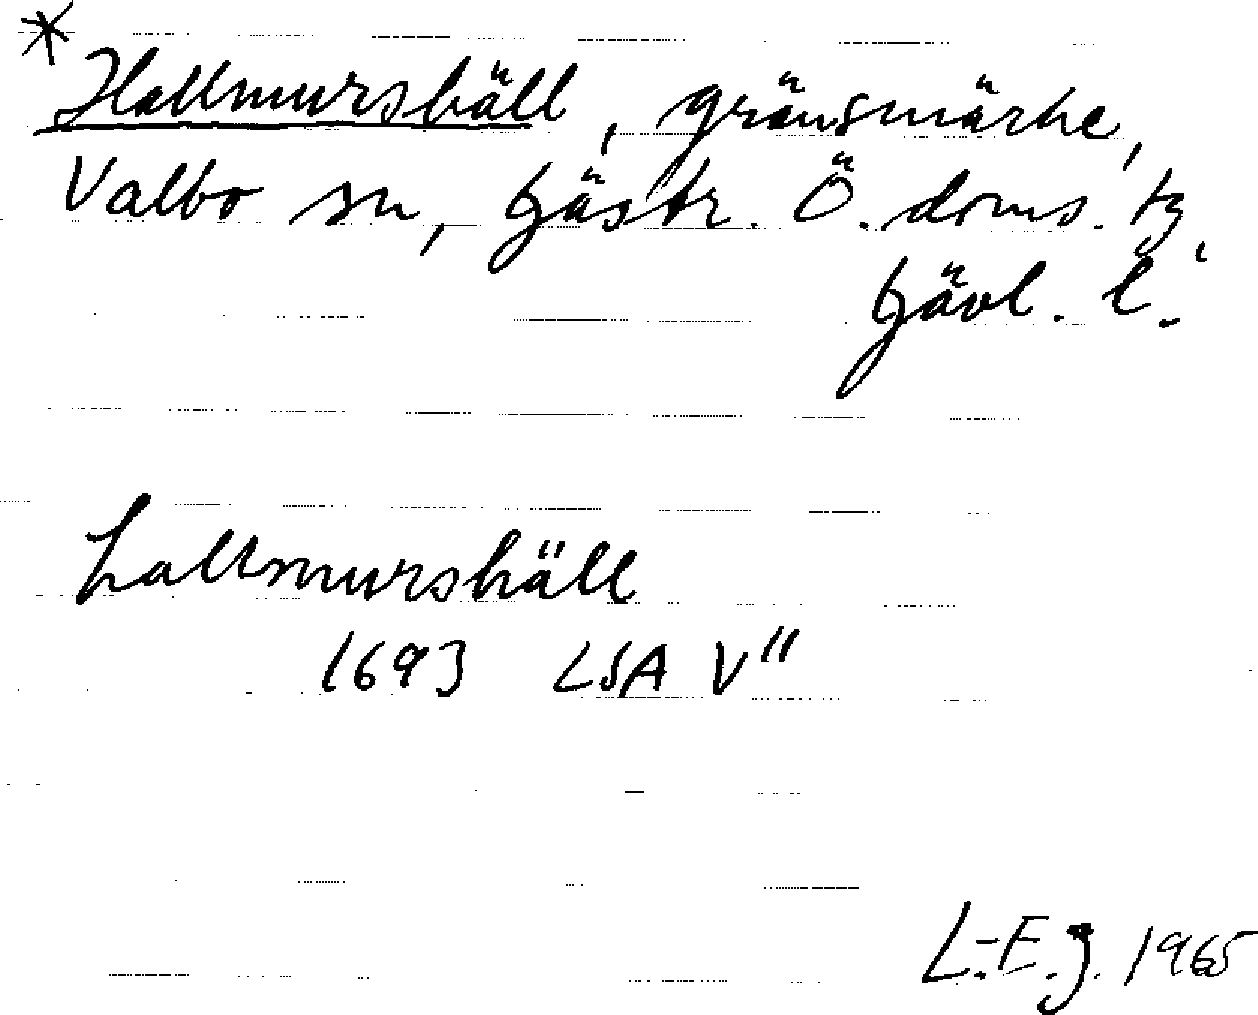 * Hallmurshäll, gränsmärke,
Valbo sn, Gästr. Ö. doms. tg,
Gävl. l.
hallmurshäll
1693 LSA V"
L.-E. J. 1965